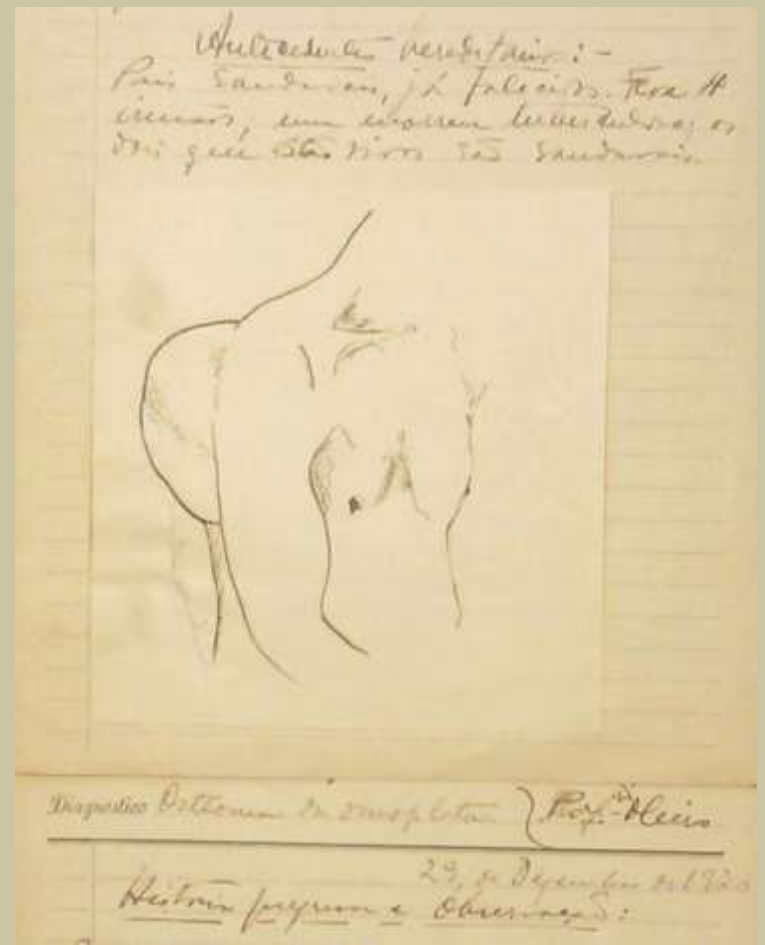 Antecedentes hereditarios: -
Pais saudaveis, já falecidos. Teve 4
irmãos, um morreu tuberculoso; os
dois que estão vivos são saudaveis.
Diagnostico Osteoma da omoplata Prof.
29, de Dezembro de 192
Historia pregressa e Observação: